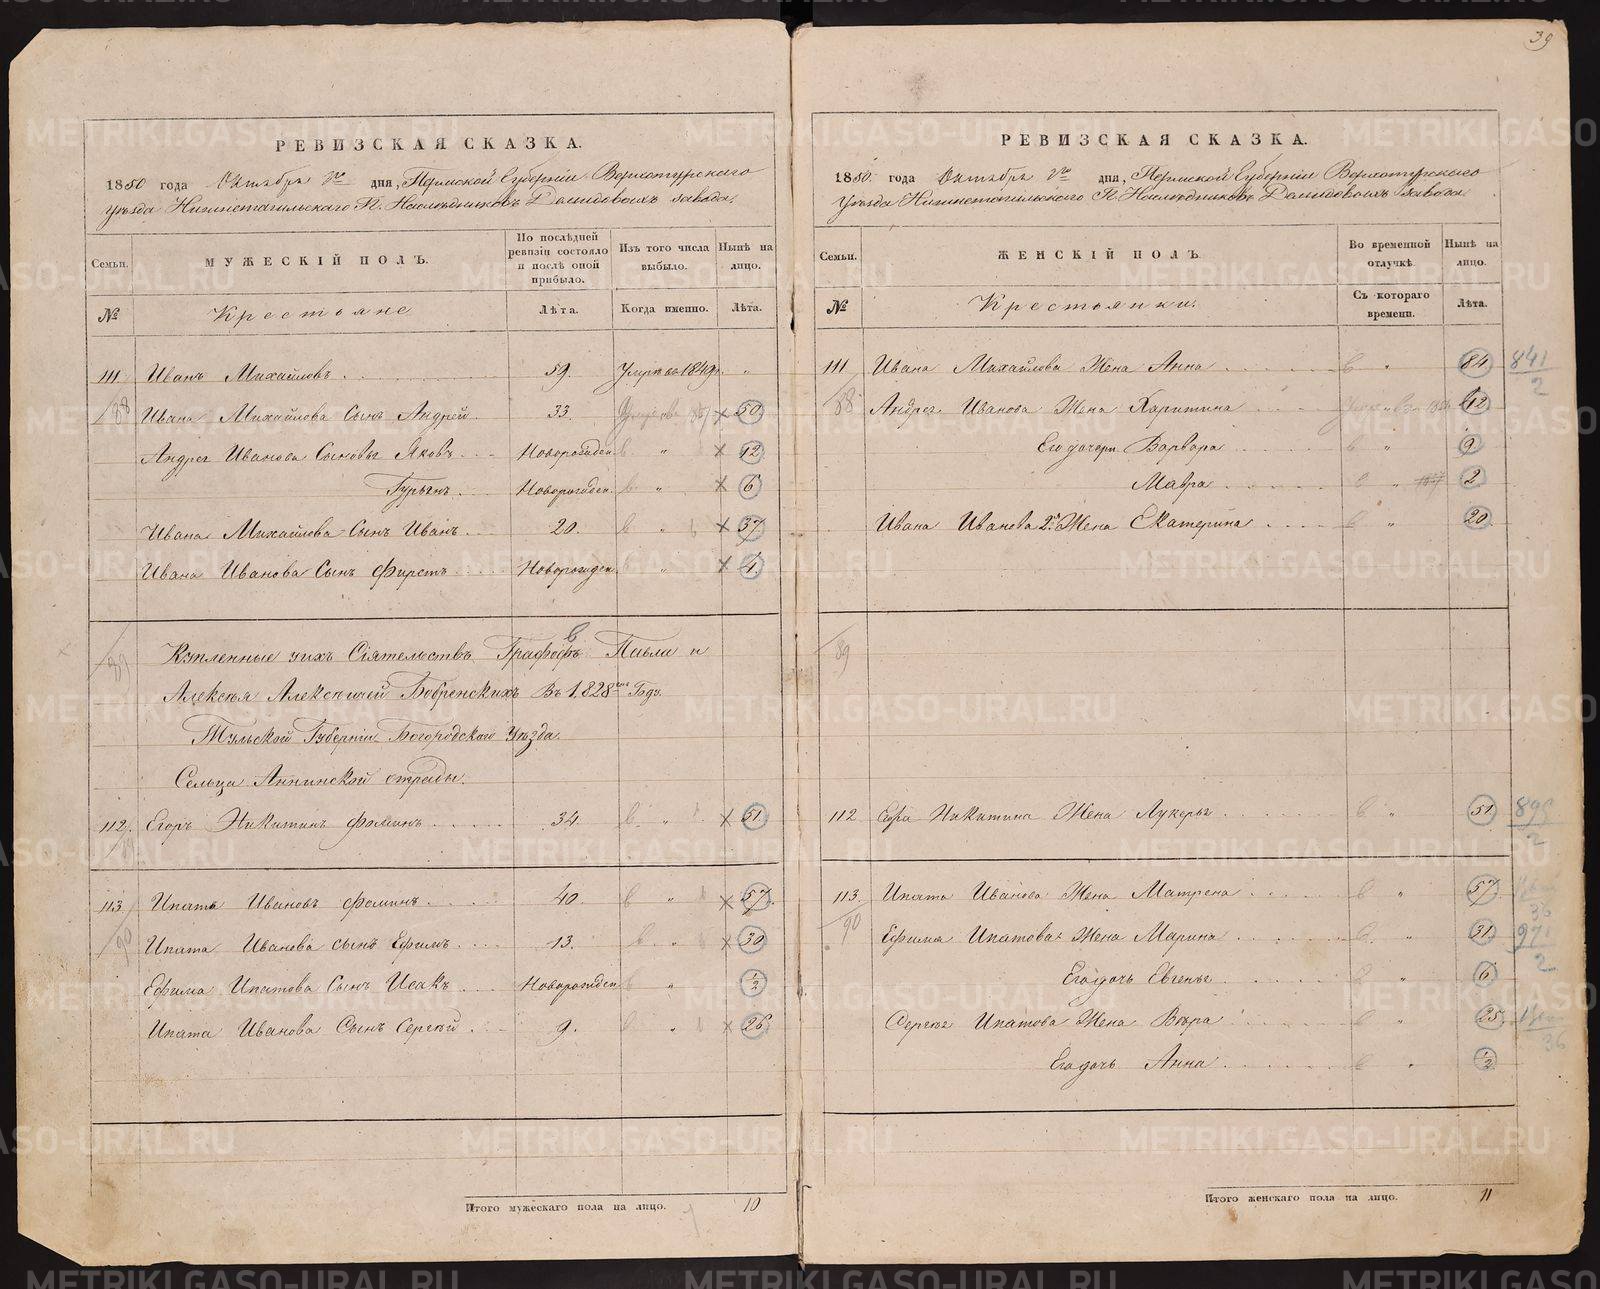 39
РЕВИЗСКАЯ СКАЗКА.
1850 года Октября дня, Пермской Губерніи Верхотурскаго
Уѣзда Нижнетагильскаго Г. Наслѣдниковъ Демидовыхъ завода.
Семьи. МУЖЕСКІЙ ПОЛЪ. По послѣдней ревизіи состояло и послѣ оной прибыло. Изъ того числа выбыло. Нынѣ на лицо.
№ Крестьяне Лѣта. Когда именно. Лѣта.
111 Иванъ Михайловъ 59. Умре въ 1849г. "
88 Ивана Михайлова Сынъ Андрей 33. × 50
Андрея Иванова Сыновья Яковъ Новорожден. " × 12
Гурьянъ Новорожден. " × 6
Ивана Михайлова Сынъ Иванъ 20. " × 37
Ивана Иванова Сынъ Фирстъ Новорожден. " × 4
89 Купленные у ихъ Сіятельствъ Графовъ Павла и
Алексѣя Алексѣичей Бобренскихъ Въ 1828мъ Году
Тульской Губерніи Богородскаго Уѣзда
Сельца Аннинской отрады.
112. Егоръ Никитинъ Фоминъ 34 " × 51
113 Ипатъ Ивановъ Фоминъ 40. " × 57
90 Ипата Иванова сынъ Ефимъ 13. " × 30
Ефима Ипатова Сынъ Исакъ Новорожден " 1/2
Ипата Иванова Сынъ Сергѣй 9. " × 26
Итого мужескаго пола на лицо. 10
РЕВИЗСКАЯ СКАЗКА.
1850 года Октября дня, Пермской Губерніи Верхотурскаго
Уѣзда Нижнетагильскаго Г. Наслѣдниковъ Демидовыхъ завода.
Семьи. ЖЕНСКІЙ ПОЛЪ Во временной отлучкѣ. Нынѣ на лицо.
№ Крестьянки. Съ котораго времени. Лѣта.
111 Ивана Михайлова Жена Анна " 84 841/2
88 Андрея Иванова Жена Харитина " 42
Его дочери Варвара " 9
Мавра " 2
Ивана Иванова 2я Жена Екатерина " 20
89
112 Егора Никитина Жена Лукерья " 51 895/2
113 Ипата Иванова Жена Матрена " 57 36
90 Ефима Ипатова Жена Марина " 31 971/2
Его дочь Евгенья " 6
Сергѣя Ипатова Жена Вѣра " 25 36
Его дочь Анна " 1/2
Итого женскаго пола на лицо. 11
METRIKI.GASO-URAL.RU